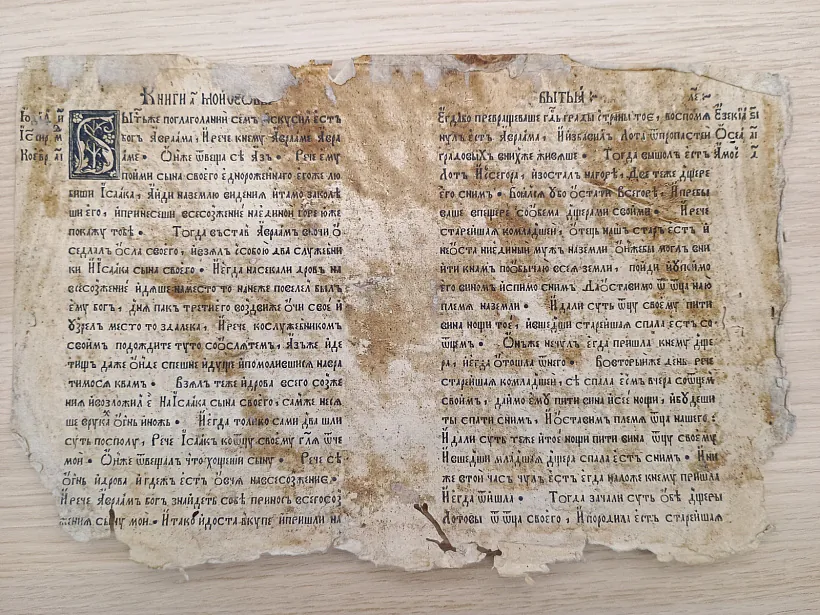 Книги а҃ моисеѡвы
Бытьже поглаголании семъ искусилъ естъ
богъ Авраама, Ирече кнему Авраме Авра
аме • Онже ѿвеща се Язъ • Рече ему
поими сына своего единороженнаго егоже лю
биши Ісаака, Аиди наземлю видения итамо заколе
ши его, ипринесеши всесозжение наединои горе юже
покажу тобѣ • Тогда въставъ Авраам вночи о
седлалъ осла своего, ивзялъ ссобою два служебни
ки И Ісаака сына своего • Иегда насекали дровъ на
всесозжение идяше наместо то нанеже повелел былъ
ему богъ, дня пакъ третиего воздвиже очи свое и
узрел место то здалека, Ирече кослужебником
своим подождите туто соослятем, Азъже и де
тищъ даже онде спешне идуще ипомолившися навра
тимося квам • Взялъ теже идрова всего созже
ния ивозложил е на Ісаака сына своего, самже нося
ше вруках огнь иножь • Иегда только сами два шли
суть посполу, Рече Ісаакъ коѿцу своему гля ѿче
мои • Онже ѿвещалъ что хощеши сыну • Рече се
огнь идрова игдежъ естъ овчя навсесозжение •
Ирече Авраамъ богъ знаидеть собѣ приносъ всегосоз
жения сыну мои • Итако идоста вкупе ипришли на
Бытья
Егдабо превращаваше гдь грады страны тое, воспомя
нулъ естъ Авраама, Иизбавилъ Лота ѿпропасти
градовыхъ внихже живяше • Тогда вышолъ естъ
Лот ИСсегора, изосталъ нагоре, Две теже дщере
его сним • Боялся убо остати Всегорѣ, Ипребы
ваше впещере сообема дщерами своима • Ирече
стареишая комладшеи, отець наш старъ естъ и
неоста ниединыи мужъ наземли онжебы моглъ вни
ити кнам пообычаю всея земли, поиди иупоимо
его вином испимо сним Даоставимо ѿ ѿца наю
племя наземли • Идали суть ѿцу своему пити
вина нощи тое, ившедши стареишая спала естъ со
ѿцем • Онъже нечулъ егда пришла кнему дще
ра, иегда отошла ѿнего • Вовторыиже день рече
стареишая комладшеи, се спала есмъ вчера соѿцем
своимъ, даимо ему пити вина исее нощи, ибудеши
ты спати сним, Иоставим племя ѿца нашего •
Идали суть теже итое нощи пити вина ѿцу своему
Ившедши младшая дщера спала естъ сним • Ини
же втои часъ чулъ естъ егда наложе кнему пришла
Иегда ѿишла • Тогда зачали суть обѣ дщеры
Лотовы ѿ ѿца своего, Ипородила естъ стареишая